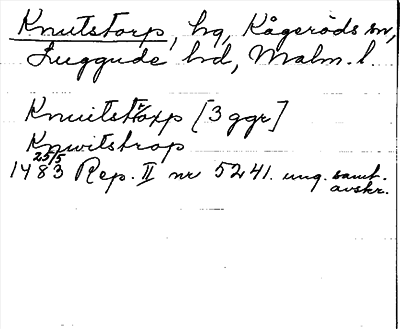 Knutstorp, hg, Kågeröds sn,
Luggude hd, Malm. l.
Knuitstorpp [3 ggr]
Knwitstrop
1483 25/5 Rep. II nr 5241. ung. samt. avskr.